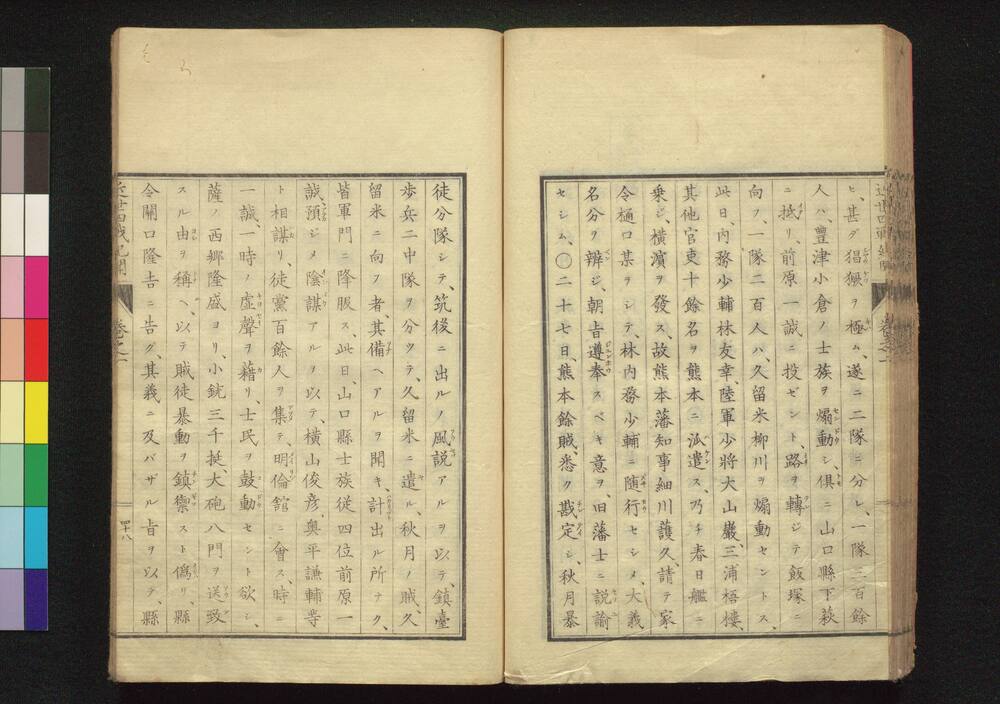 ヒ、甚ダ猖獗ヲ極ム、遂ニ二隊ニ分レ、一隊三百餘
人ハ、豊津小倉ノ士族ヲ煽動シ、倶ニ山口縣下萩
ニ抵リ、前原一誠ニ投ゼント、路ヲ轉ジテ飯塚ニ
向フ、一隊二百人ハ、久留米柳川ヲ煽動セントス、
此日、内務少輔林友幸、陸軍少將大山巖、三浦梧樓、
其他官吏十餘名ヲ熊本ニ派遣ス、乃チ春日艦ニ
乗ジ、横濱ヲ發ス、故熊本藩知事細川護久、請テ家
令樋口某ヲシテ、林内務少輔ニ随行セシメ、大義
名分ヲ辨ジ、朝旨遵奉スベキ意ヲ、旧藩士ニ説諭
セシム、〇二十七日、熊本餘賊、悉ク戡定シ、秋月暴
徒分隊シテ、筑後ニ出ルノ風説アルヲ以テ、鎮臺
歩兵二中隊ヲ分ツテ、久留米ニ遣ル、秋月ノ賊、久
留米ニ向フ者、其備ヘアルヲ聞キ、計出ル所ナク、
皆軍門ニ降服ス、此日、山口縣士族従四位前原一
誠、預ジメ陰謀アルヲ以テ、横山俊彦、奥平謙輔等
ト相謀リ、徒黨百餘人ヲ集テ、明倫舘ニ會ス、時ニ
一誠、一時ノ虚聲ヲ藉リ、士民ヲ鼓動セント欲シ、
薩ノ西郷隆盛ヨリ、小銃三千挺、大砲八門ヲ送致
スル由ヲ稱ヘ、以テ賊徒暴動ヲ鎮禦スト僞リ、縣
令關口隆吉ニ告グ、其義ニ及バザル旨ヲ以テ、縣
卷之一
四十八